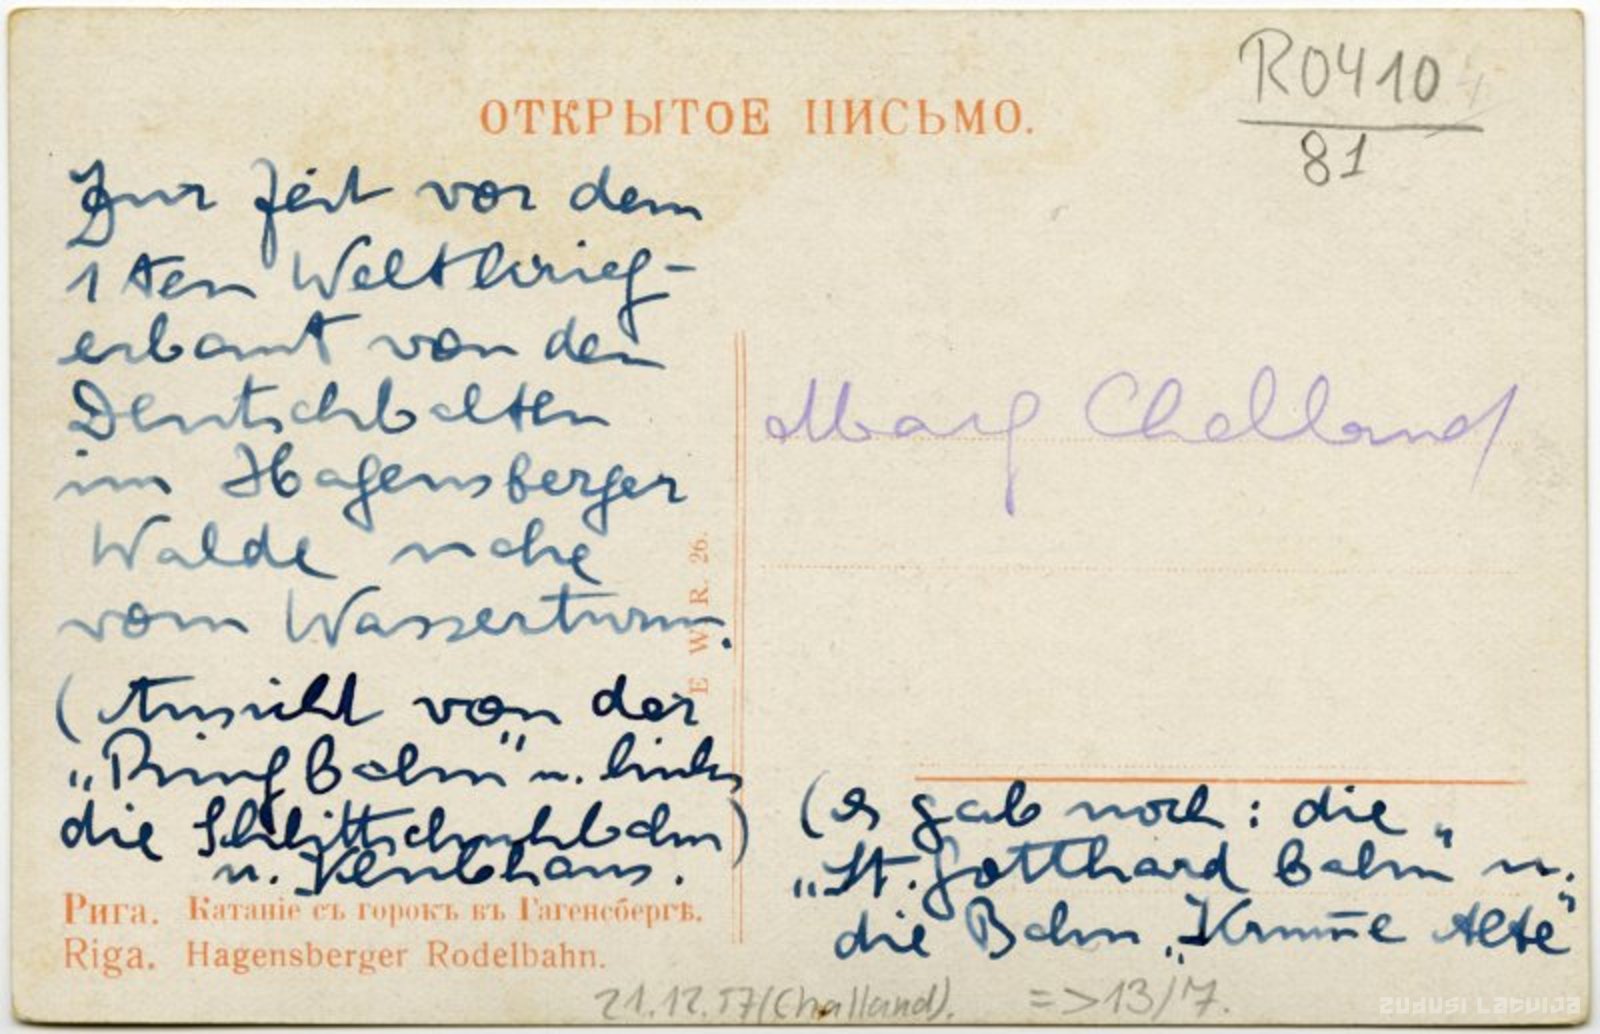 R0410
81
ОТКРЫТОЕ ПИСЬМО.
Zur Zeit vor dem
1ten Weltkrieg-
erbaut von den
Deutschbalten
im Hagensberger
Walde nahe
vom Wasserturm.
(Ansicht von der
„Ringbahn" u. links
die Schlittschuhbahn)
u. Klubhaus.
E W R. 26.
Mary Challand
(es gab noch: die
„St. Gotthard Bahn" u.
die Bahn „Krum̄e Alte"
Рига. Катаніе съ горокъ въ Гагенсбергѣ.
Riga. Hagensberger Rodelbahn.
21.12.57 (Challand). => 13/7.
zudusi Latvija